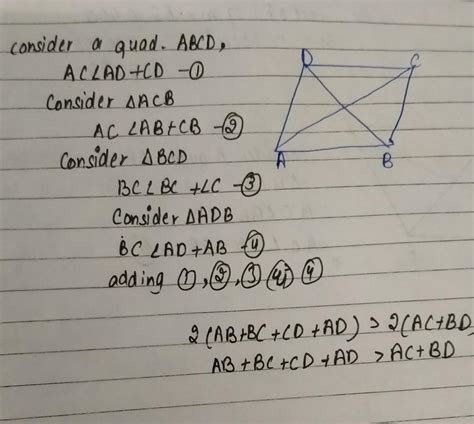 consider a quad. ABCD,
AC∠AD+CD -①
Consider △ACB
AC ∠AB+CB -②
Consider △BCD
BC∠BC +∠C -③
Consider △ADB
BC ∠AD+AB -④
adding ①,②,③ ④ ④
2(AB+BC+CD+AD) > 2(AC+BD
AB+BC+CD+AD >AC+BD
D C
A B